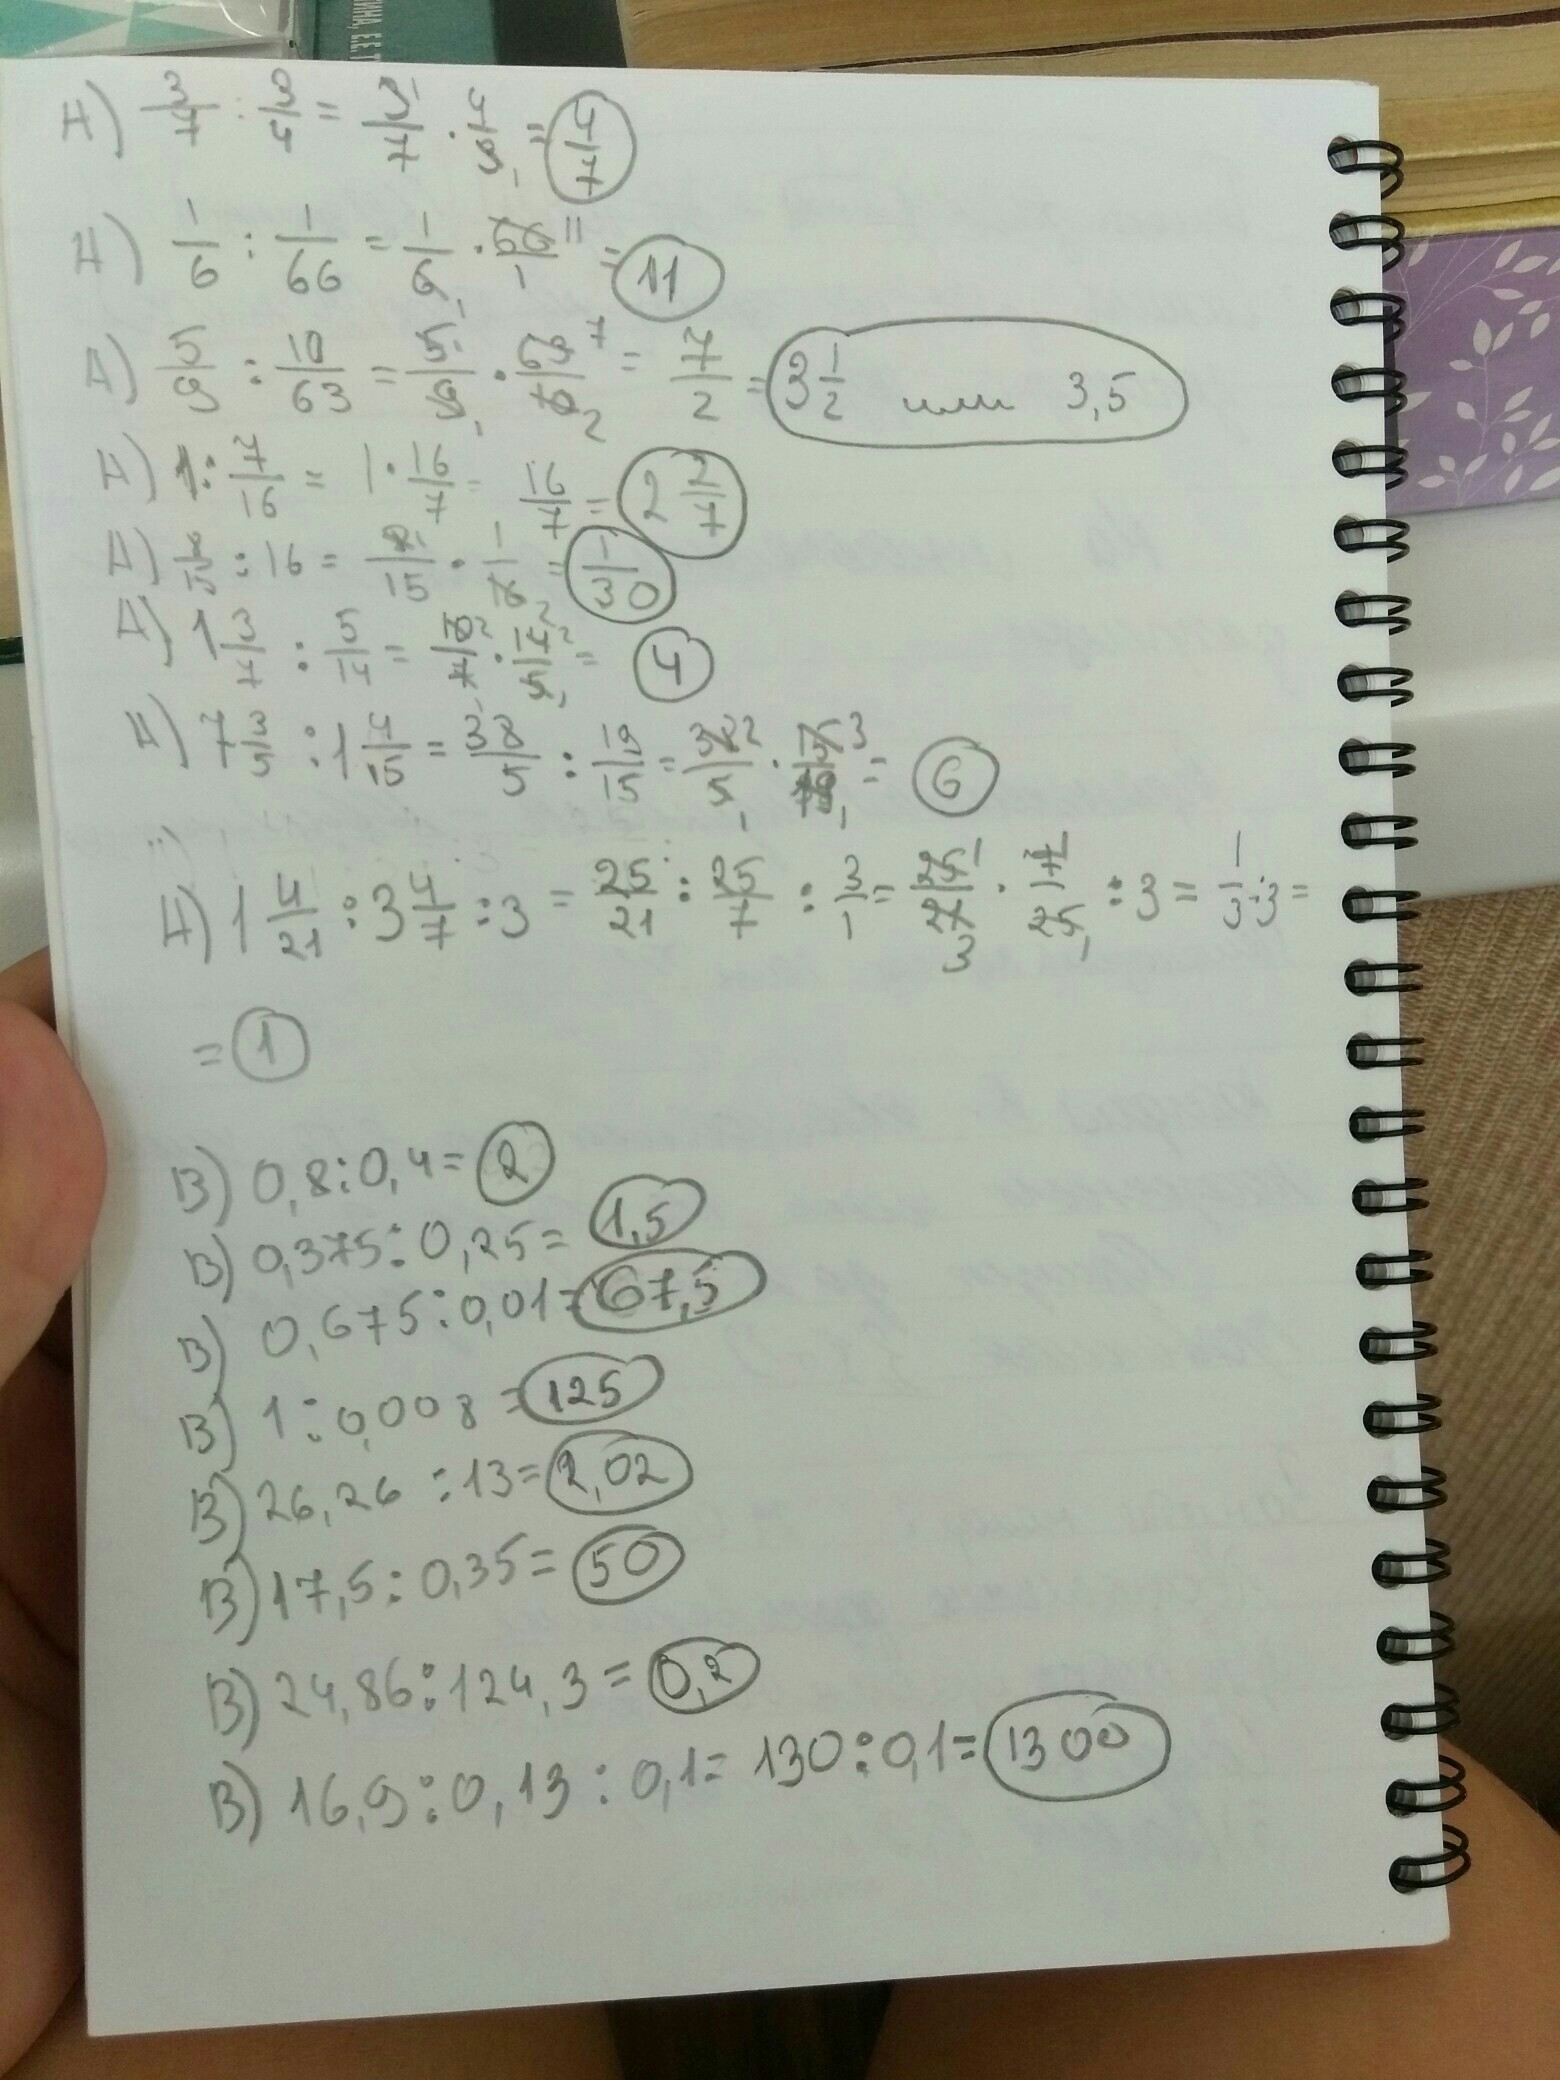 ИНА, Е.Е.
А) 3/7 : 3/4 = 3/7 · 4/3 = 4/7
А) 1/6 : 1/66 = 1/6 · 66/1 = 11
А) 5/9 : 10/63 = 5/9 · 63/10 = 7/2 = 3 1/2 или 3,5
А) 1 : 7/16 = 1 · 16/7 = 16/7 = 2 2/7
А) 8/15 : 16 = 8/15 · 1/16 = 1/30
А) 1 3/7 : 5/14 = 10/7 · 14/5 = 4
А) 7 3/5 : 1 4/15 = 38/5 : 19/15 = 38/5 · 15/19 = 6
А) 1 4/21 : 3 4/7 : 3 = 25/21 : 25/7 : 3/1 = 25/21 · 7/25 : 3 = 1/3 : 3 =
= 1
В) 0,8 : 0,4 = 2
В) 0,375 : 0,25 = 1,5
В) 0,675 : 0,01 = 67,5
В) 1 : 0,008 = 125
В) 26,26 : 13 = 2,02
В) 17,5 : 0,35 = 50
В) 24,86 : 124,3 = 0,2
В) 16,9 : 0,13 : 0,1 = 130 : 0,1 = 1300